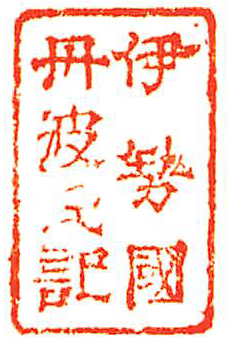 伊勢國
丹波氏記